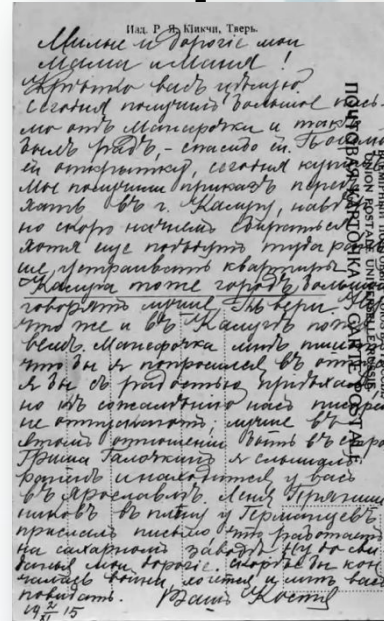 Изд. Р. Я. Кикчи, Тверь.
Милые и дорогіе мои
Мама и Маня!
Крѣпко васъ цѣлую.
Сегодня получилъ большое пись-
мо отъ Манефочки и такъ
былъ радъ, - спасибо ей.
ей открытку, сегодня
Мы получили приказъ переѣ
жать въ г. Калугу,
но скоро начнемъ собираться
хотя еще поѣдутъ туда рань
ше, устраивать квартиры
Калуга тоже городъ большой
говорятъ лучше Твери.
что же и въ Калугѣ
Манефочка мнѣ пишетъ
что бы я попросился въ
я бы съ радостью пріѣхалъ
но къ сожалѣнію насъ
не отпускаютъ, лучше въ
этомъ отношеніи быть въ
Гриша Галочкинъ я слышалъ
раненъ и находится у васъ
въ Ярославлѣ. Леня Пряниш
никовъ въ плѣну у Германцевъ
прислалъ письмо что работаетъ
на сахарномъ заводѣ. Ну до сви
данья мои дорогіе. Скорѣе бы кон
чилась война, хочется и мнѣ васъ
повидать. Вашъ Костя
19 2/XI 15
ПОЧТОВАЯ КАРТОЧКА. CARTE POSTALE
UNION POSTALE UNIVERSELLE RUSSIE